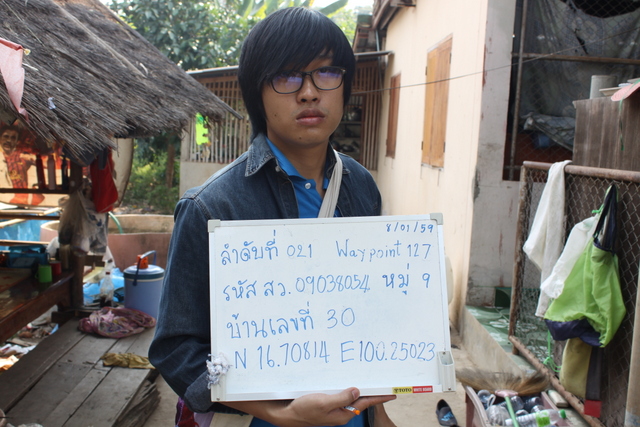 8/01/59
ลำดับที่ 021 Waypoint 127
รหัส สว. 09038054 หมู่ 9
บ้านเลขที่ 30
N 16.70814 E 100.25023
TOTO WHITE BOARD